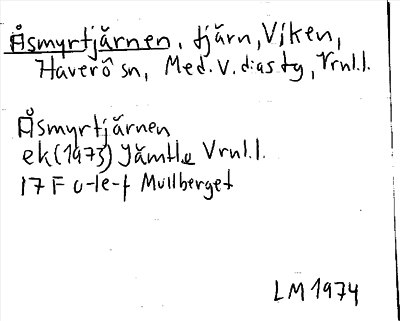 Åsmyrtjärnen, tjärn, Viken,
Haverö sn, Med.v.dias tg, Vrnl.l.
Åsmyrtjärnen
ek(1973) Jämtl. Vrnl.l.
17F u-le-f Mullberget
LM 1974